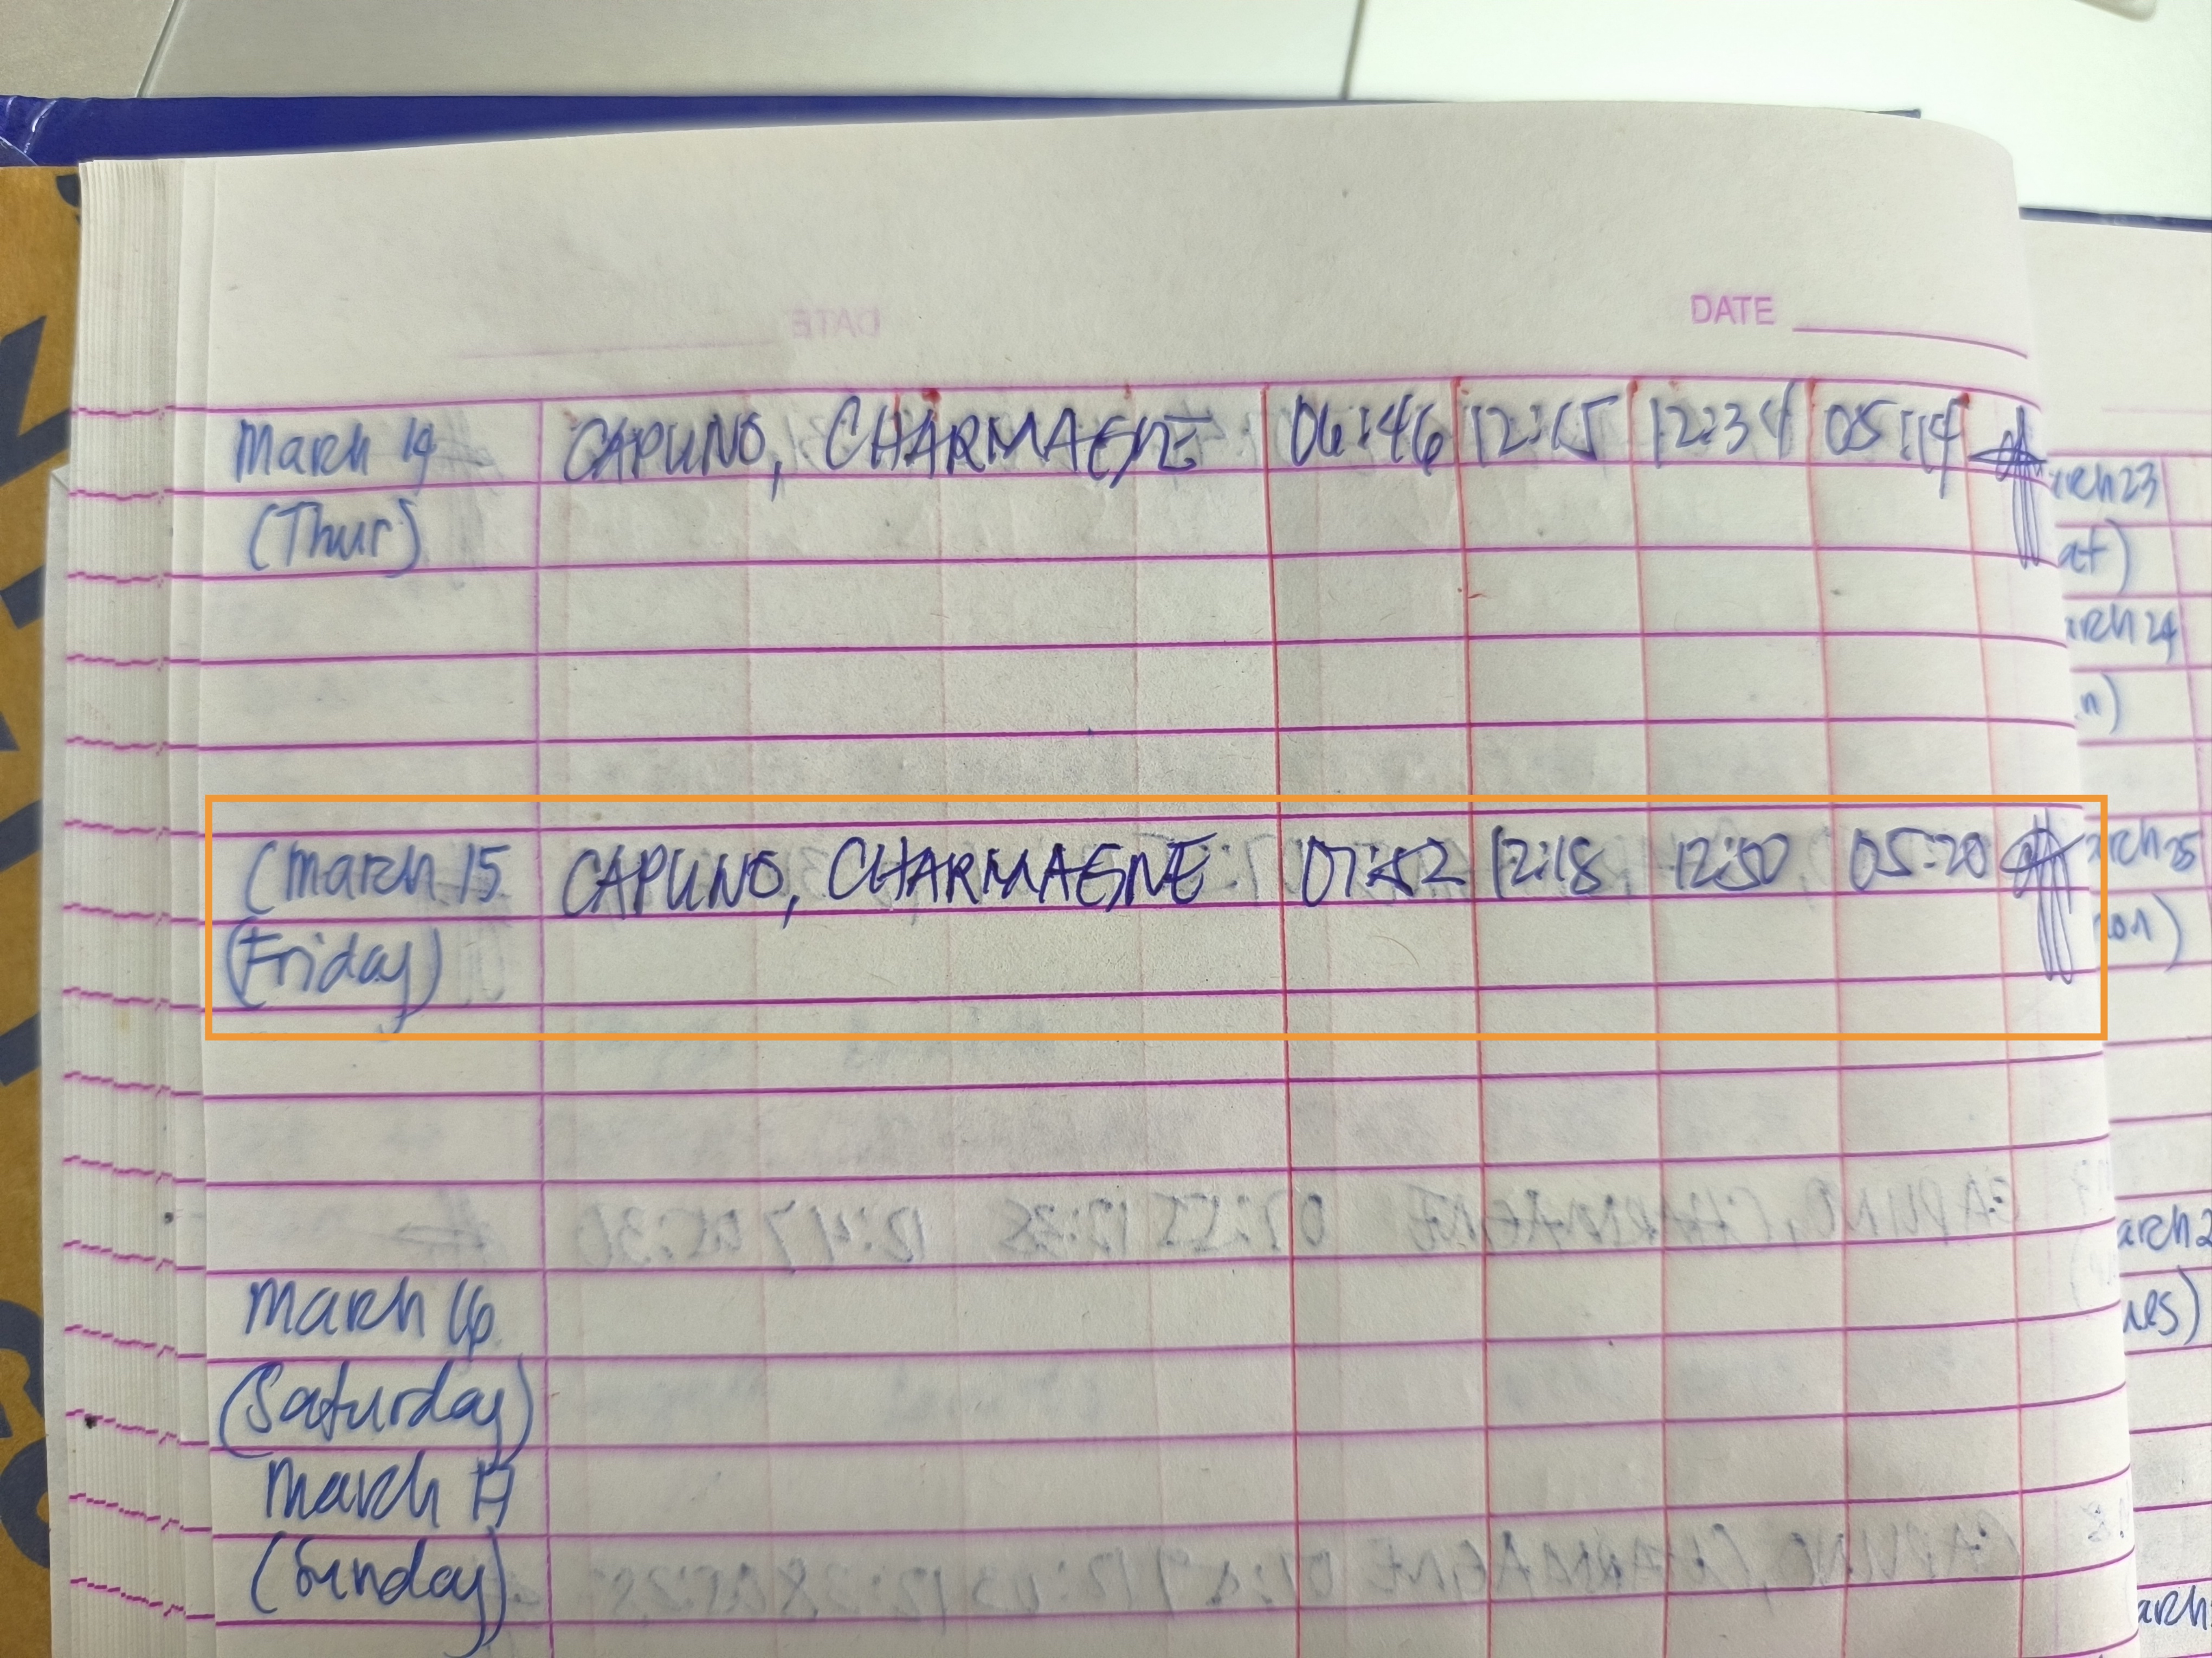 DATE
March 14 CAPUNO, CHARMAGNE 06:46 12:15 12:34 05:14
(Thur)
(March 15 CAPUNO, CHARMAGNE 07:52 12:18 12:50 05:20
(Friday)
March 16
(Saturday)
March 17
(Sunday)
rch 23
at)
arch 24
n)
arch 25
on)
arch 2
ues)
arch